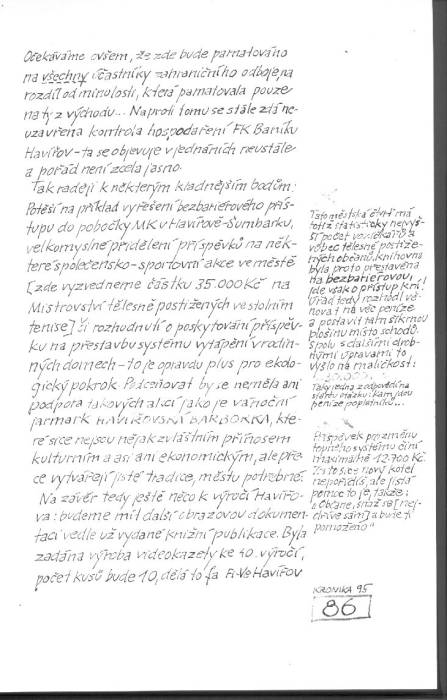 Očekáváme ovšem, že zde bude pamatováno
na všechny účastníky zahraničního odboje, na
rozdíl od minulosti, která pamatovala pouze
na ty z východu... Naproti tomu se stále zdá ne-
uzavřena kontrola hospodaření FK Baníku
Havířov – ta se objevuje v jednáních neustále
a pořád není zcela jasno.
Tak raději k některým kladnějším bodům:
Potěší na příklad vyřešení bezbariérového přís-
tupu do pobočky MK v Havířově-Šumbarku,
velkomyslné přidělení příspěvků na něk-
teré společensko-sportovní akce ve městě
[zde vyzvedneme částku 35.000 Kč na
Mistrovství tělesně postižených ve stolním
tenise] či rozhodnutí o poskytování příspěv-
ku na přestavbu systému vytápění v rodin-
ných domech – to je opravdu plus pro ekolo-
gický pokrok. Podceňovat by se neměla ani
podpora takových akcí jako je vánoční
jarmark HAVÍŘOVSKÁ BARBORKA, kte-
ré sice nejsou nějak zvláštním přínosem
kulturním a asi ani ekonomickým, ale pře-
ce vytvářejí jisté tradice, městu potřebné.
Na závěr tedy ještě něco k výročí Havířo-
va: budeme mít další obrazovou dokumen-
taci vedle už vydané knižní publikace. Byla
zadána výroba videokazety ke 40. výročí,
počet kusů bude 10, dělá to fa Havířov
Tato městská část má
totiž statisticky nejvyš-
ší počet vozíčkářů a
vůbec tělesně postiže-
ných občanů, knihovna
byla proto přestavěna
na bezbariérovou,
jde však o přístup k ní.
Úřad tedy rozhodl vě-
novat na věc peníze
a postavit tam šikmou
plošinu místo schodů.
Spolu s dalšími drob-
nými úpravami to
vyšlo na maličkost:
Taky jedna z odpovědí na
otázku: kam jdou
peníze poplatníků...
Příspěvek pro změnu
topného systému činí
maximálně 12.700 Kč.
Za to si sice nový kotel
nepořídíš, ale jistá
pomoc to je, takže:
„Občane, snaž se [nej-
dříve sám] a bude ti
pomoženo"
KRONIKA 95
86